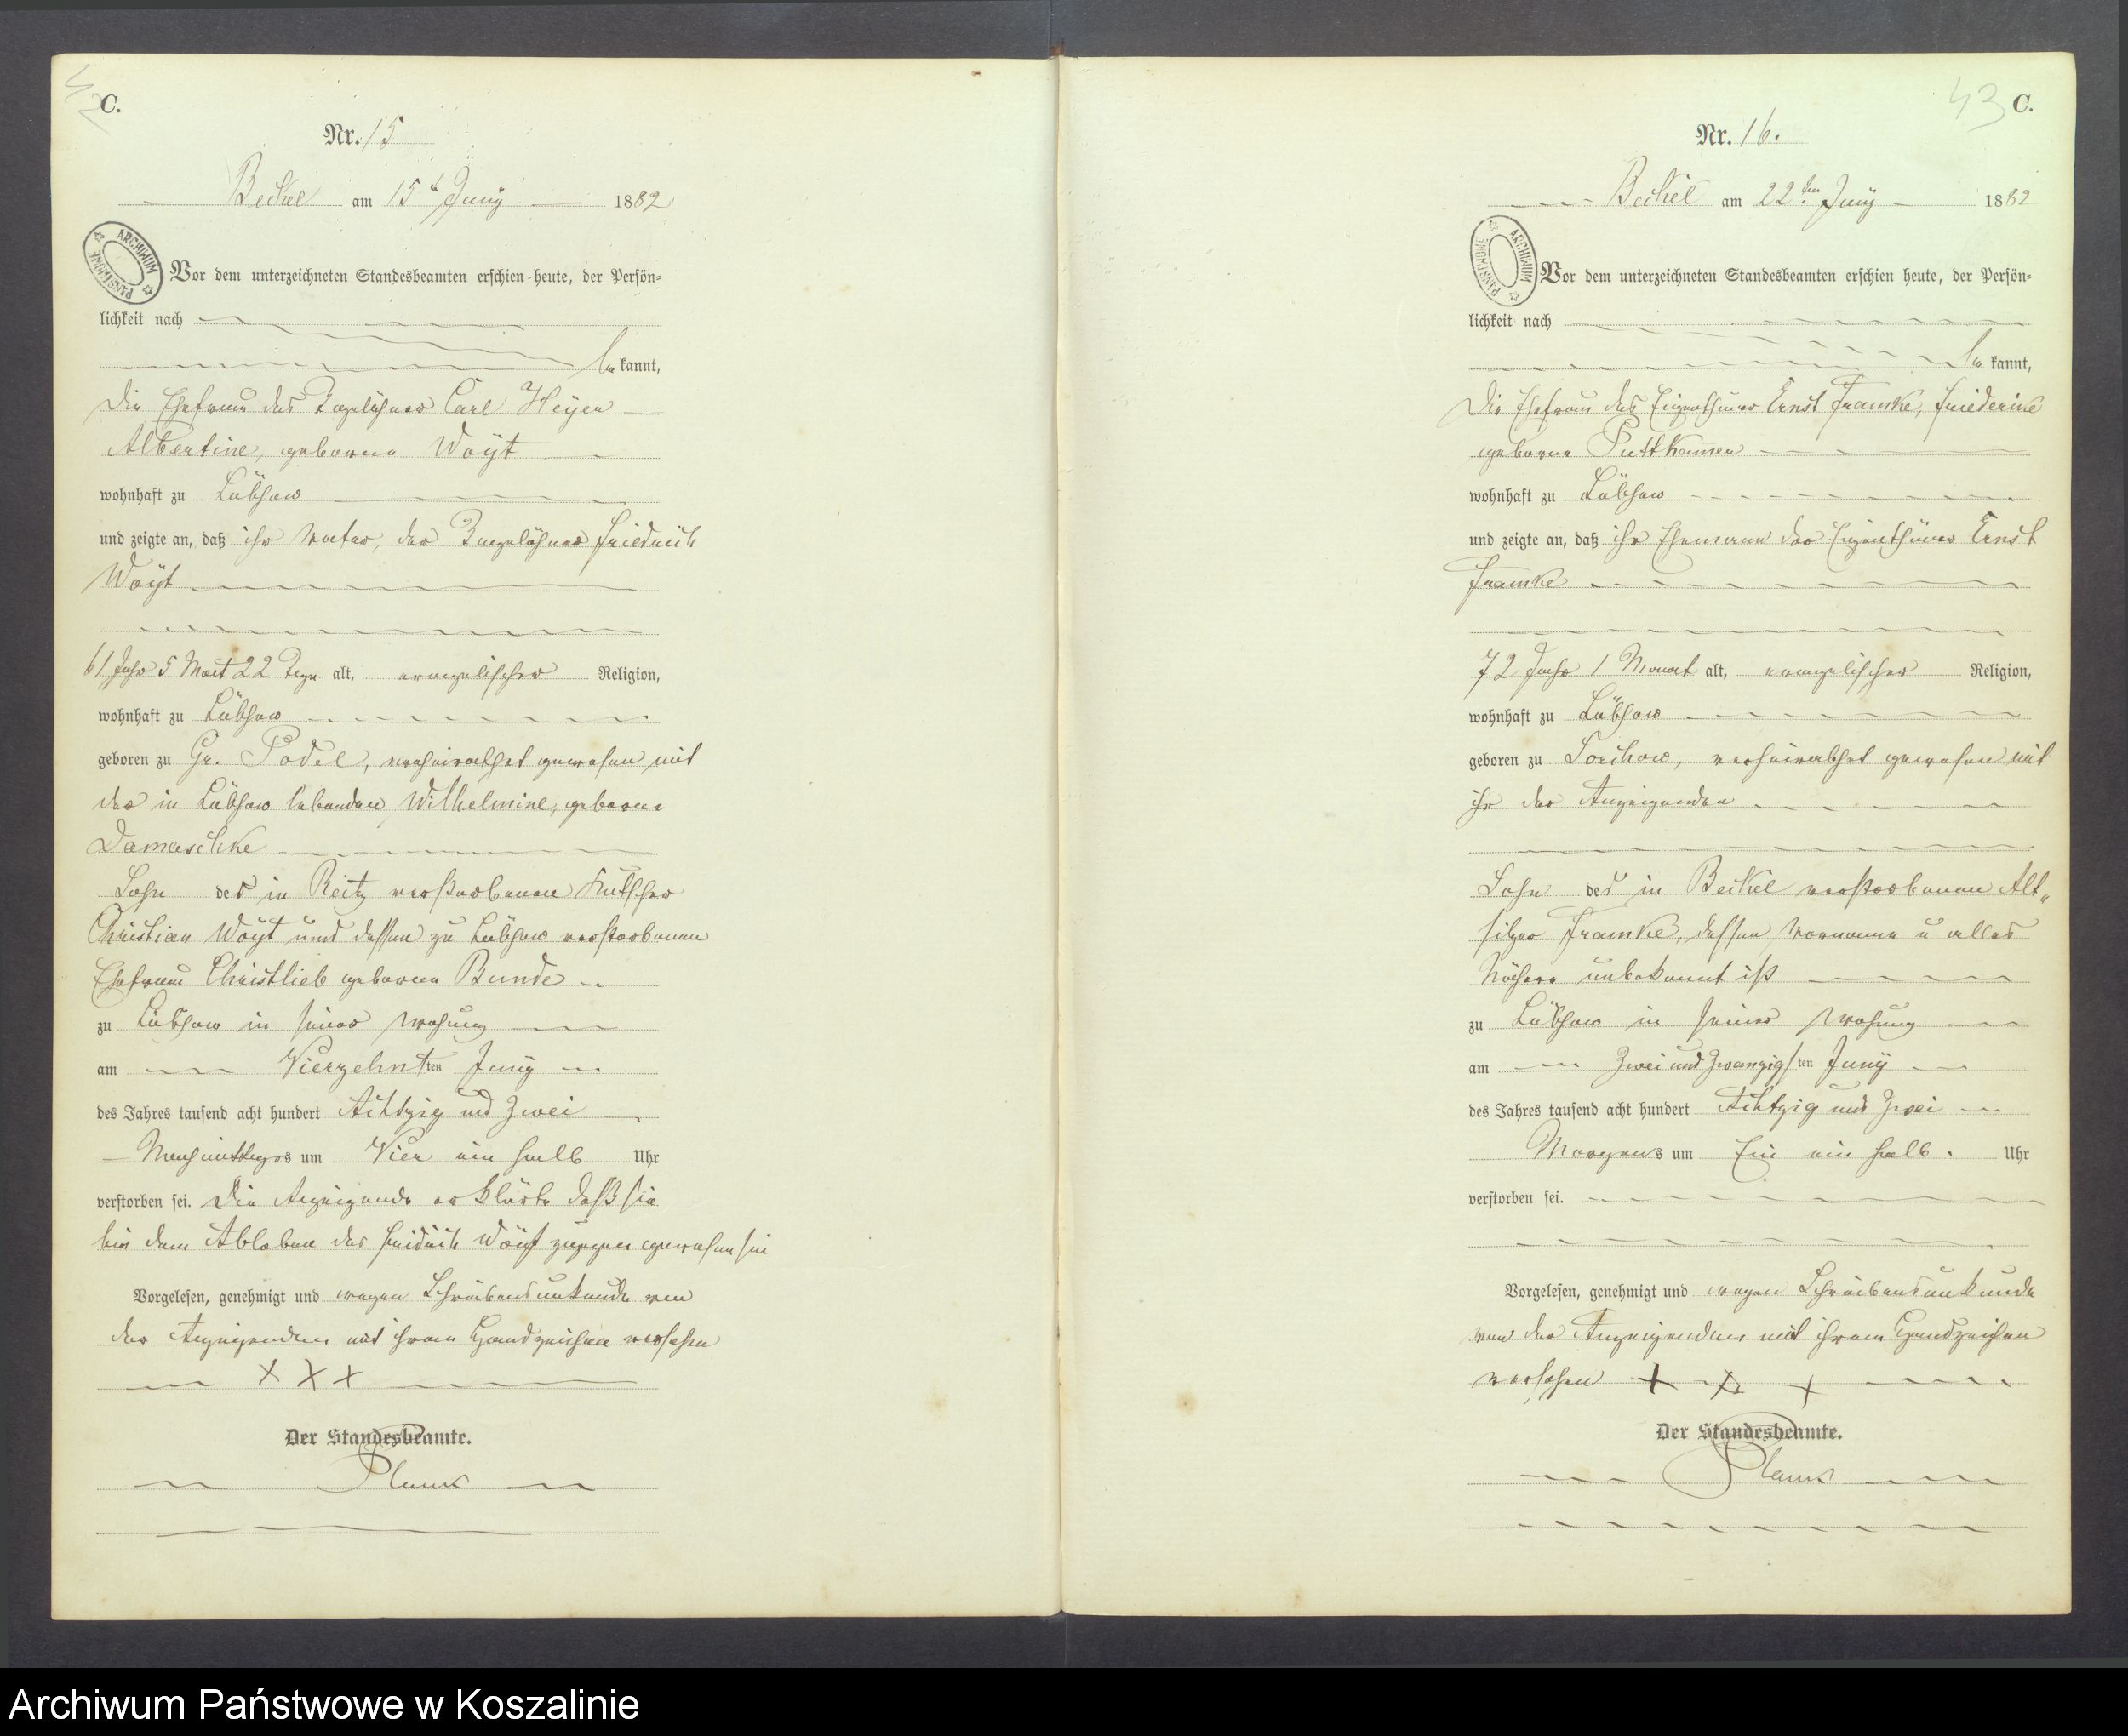 C.
Nr. 15
Beckel am 15t Juny 1882
ARCHIWUM PAŃSTWOWE
Vor dem unterzeichneten Standesbeamten erschien heute, der Persön=
lichkeit nach
be kannt,
Die Ehefrau des Tagelöhner Carl Heyer
Albertine, geborne Woyt
wohnhaft zu Lübzow
und zeigte an, daß ihr Vater, der Tagelöhner Friedrich
Woyt
61 Jahr 5 Mont 22 Tage alt, evangelischer Religion,
wohnhaft zu Lübzow
geboren zu Gr. Podel, verheirathet gewesen mit
der in Lübzow lebenden Wilhelmine, geborne
Damaschke
Sohn des in Reitz verstorbenen Kutscher
Christian Woyt und dessen zu Lübzow verstorbenen
Ehefrau Christlieb geborne Bunde
zu Lübzow in seiner Wohung
am Vierzehnten Juny
des Jahres tausend acht hundert Achtzig und Zwei
Nachmittags um Vier ein halb Uhr
verstorben sei. Die Anzeigende erklärte daß sie
bei dem Ableben des Friedrich Woyt zugegen gewesen sei
Vorgelesen, genehmigt und wegen Schreibensunkunde von
der Anzeigenden mit ihrem Handzeichen versehen
X X X
Der Standesbeamte.
43 C.
Nr. 16.
Beckel am 22ten Juny 1882
ARCHIWUM PAŃSTWOWE
Vor dem unterzeichneten Standesbeamten erschien heute, der Persön=
lichkeit nach
be kannt,
Die Ehefrau des Eigenthümer Ernst Framke, Friederike
geborne Puttkamer
wohnhaft zu Lübzow
und zeigte an, daß ihr Ehemann der Eigenthümer Ernst
Framke
72 Jahr 1 Monat alt, evangelischer Religion,
wohnhaft zu Lübzow
geboren zu Sorchow, verheirathet gewesen mit
ihr der Anzeigenden
Sohn des in Beckel verstorbenen Alt„
sitzer Framke, dessen Vorname u alles
Nähere unbekannt ist
zu Lübzow in seiner Wohung
am Zwei und Zwanzigsten Juny
des Jahres tausend acht hundert Achtzig und Zwei
Morgens um Ein ein halb. Uhr
verstorben sei.
Vorgelesen, genehmigt und wegen Schreibensunkunde
von der Anzeigenden mit ihrem Handzeichen
versehen + X +
Der Standesbeamte.
Archiwum Państwowe w Koszalinie